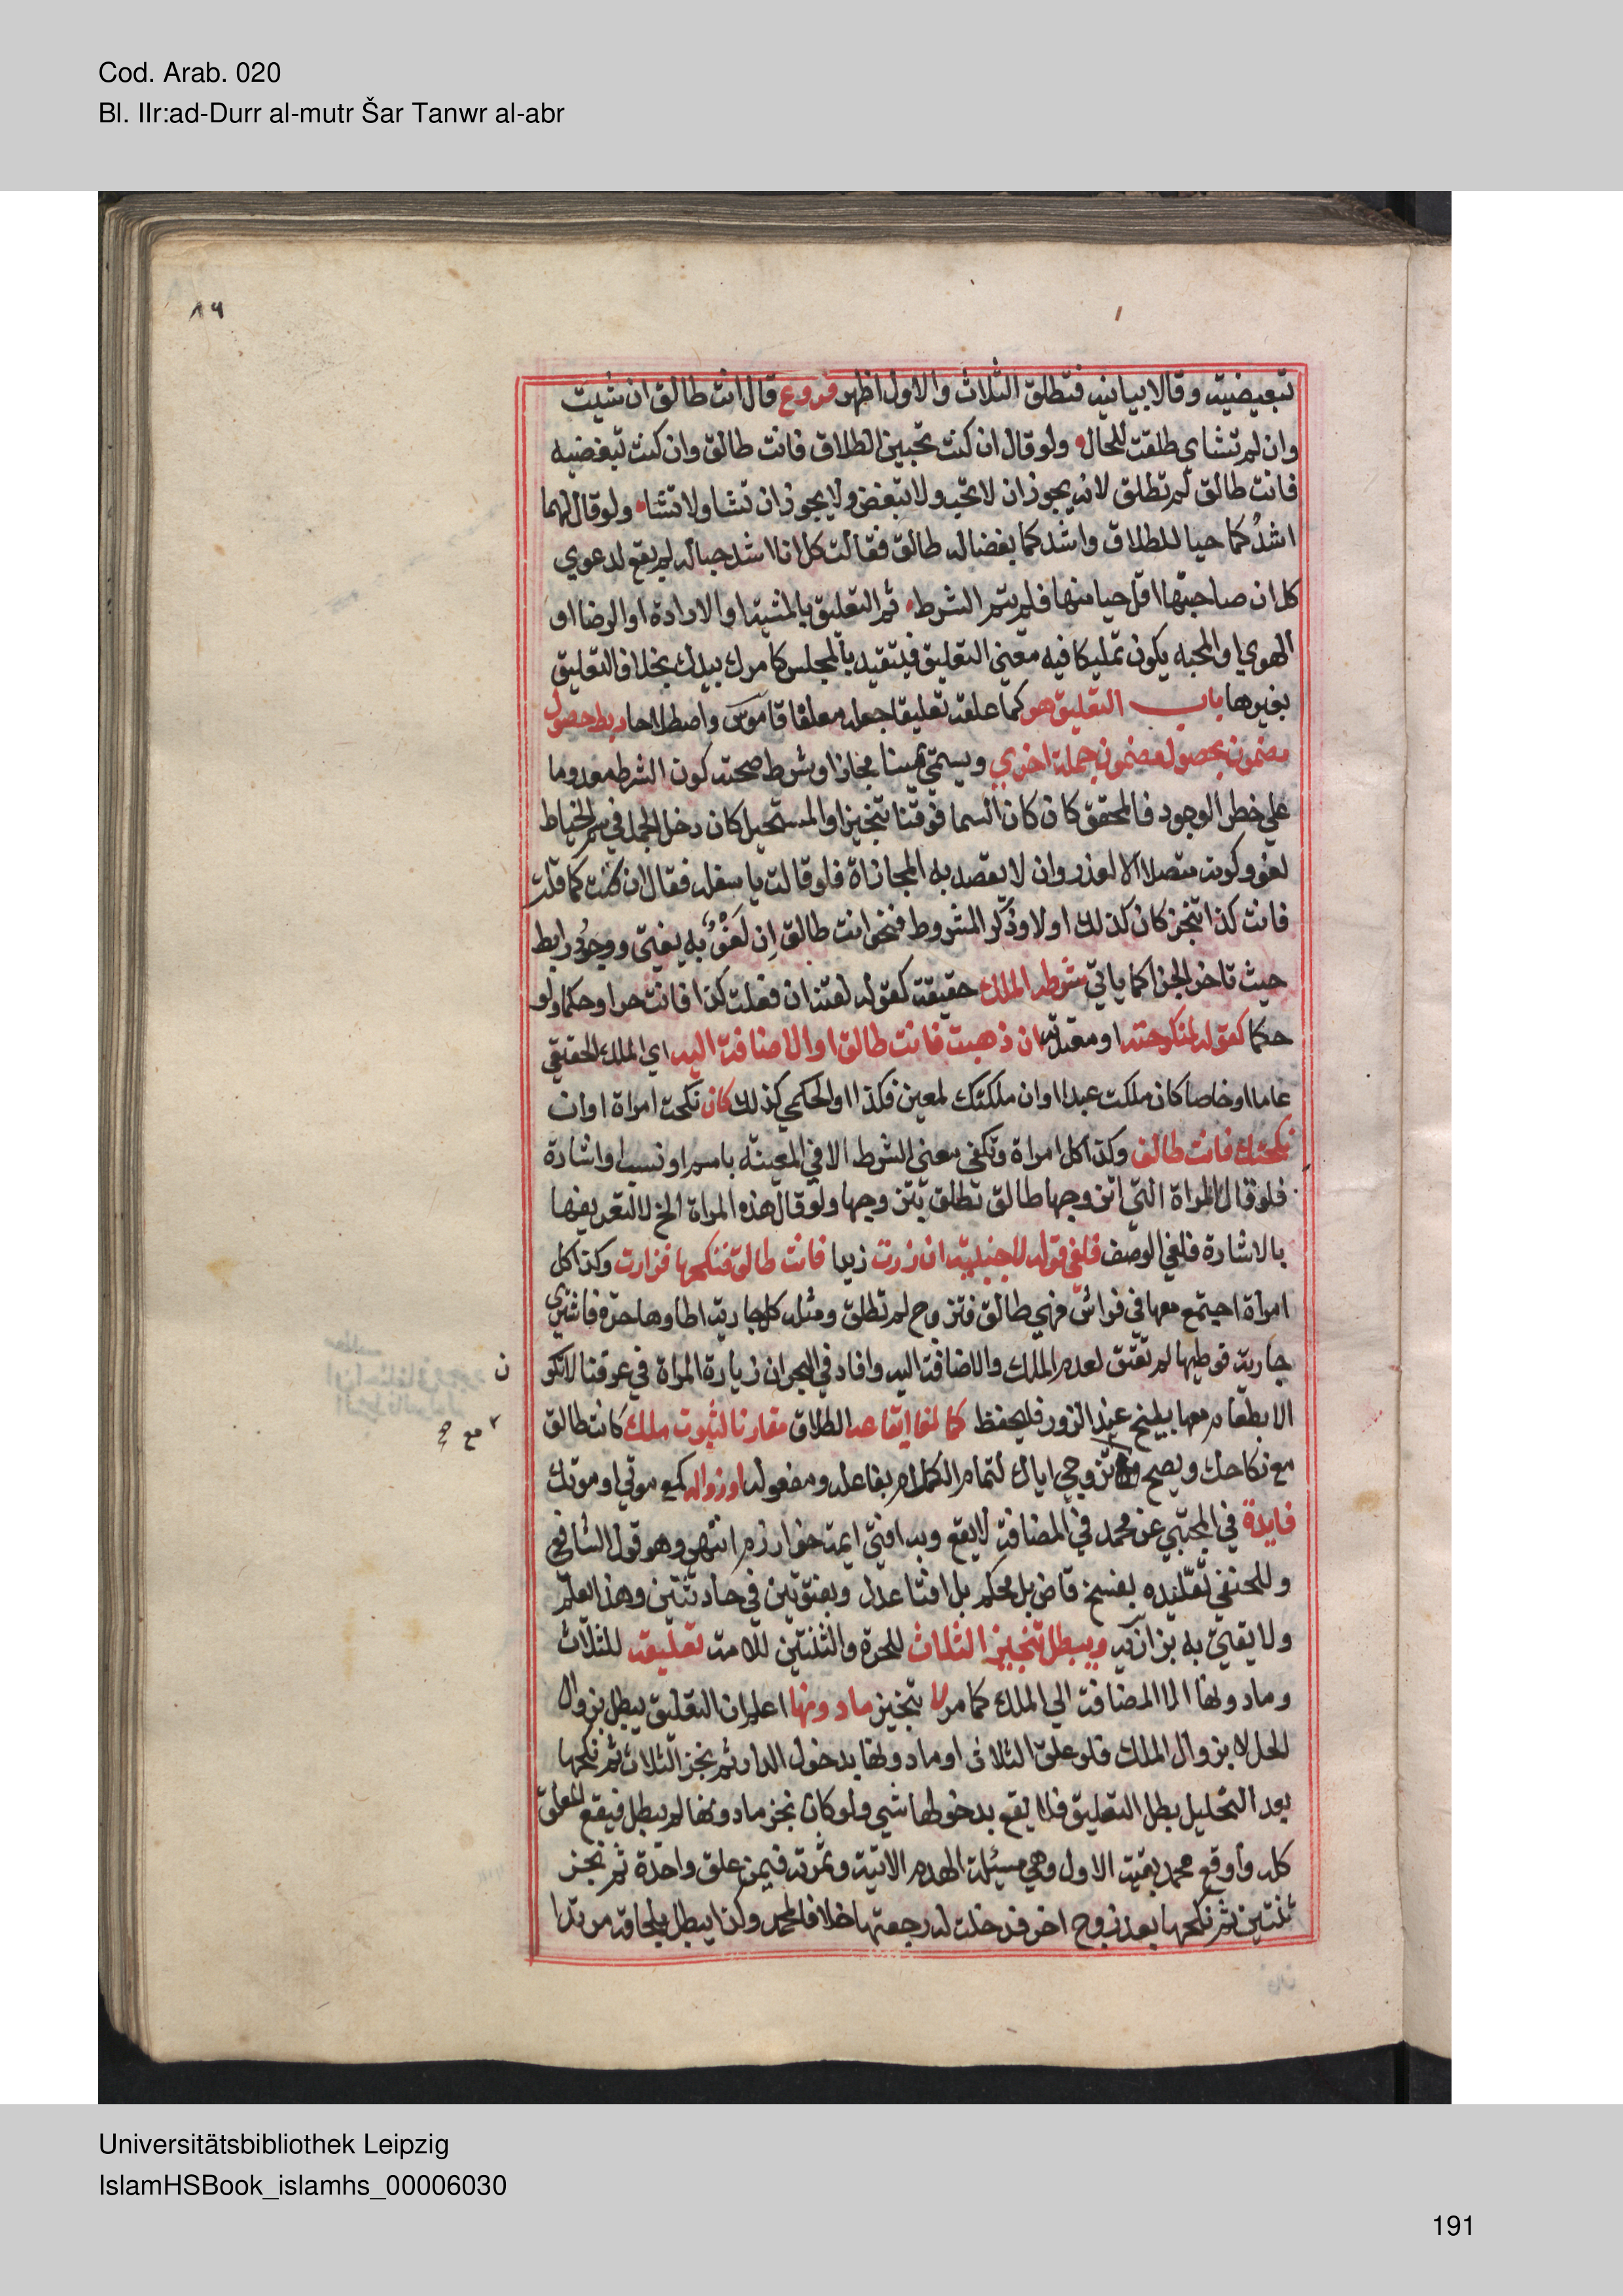 Cod. Arab. 020
Bl. IIr:ad-Durr al-mutr Šar Tanwr al-abr
تبعيضية وقالا بيانيه فتطلق الثلاث والاول اظهر فروع قال انت طالق ان شيت
وان لم تشاي طلقت للحال ولو قال ان كنت تحبين الطلاق فانت طالق وان كنت تبغضيه
فانت طالق لم تطلق لانه يجوز ان لا تحبه ولا تبغض ولا يجوز ان تشا ولا تشاء ولو قال لهما
اشدُكما حبا للطلاق واشدكما بغضا له طالق فقالت كل انا اشد حبا له لم يقع لدعوي
كل ان صاحبتها اقل حبا منها فلم يتم الشرط ثم التعليق بالمشية او الارادة او الرضا او
الهوي او المحبه يكون تمليكا فيه معني التعليق فيتقيد بالمجلس كامرك بيدك بخلاف التعليق
بغيرها باب التعليق هو كما علقه تعليقا جعله معلقا قاموس واصطلاحا ربط حصول
مضمون بحصول مضمون جملة اخري ويسمي يمينا مجازا وشرط صحته كون الشرط معدوما
علي خطر الوجود فالمحقق كان كان السما فوقنا تنجيز او المستحيل كان دخل الجمل في سم الخياط
لغو وكونه متصلا الا لعذر وان لا يقصد به المجازاة فلو قالت يا سفله فقال ان كنت كما قلت
فانت كذا تنجز كان كذلك اولا وذكر المشروط فنحو انت طالق اِن لَغْوٌ به يفتي ووجود رابط
حيث تاخر الجزا كما ياتي شرطه الملك حقيقة كقوله لقنه ان فعلت كذا فانت حر او حكما ولو
حكما كقوله لمنكوحته او معتدته ان ذهبت فانت طالق او الاضافة اليه اي الملك الحقيقي
عاما او خاصا كان ملكت عبدا او ان ملكتك لمعين فكذا او الحكمي كذلك كان نكحت امراة او ان
نكحتك فانت طالق وكذا كل امراة وتكفي معني الشرط الا في المعينة باسم او نسب او اشارة
فلو قال المراة التي اتزوجها طالق تطلق بتزوجها ولو قال هذه المراة الخ لا لتعريفها
بالاشارة فلغي الوصف فلغي قوله لاجنبية ان زرت زيدا فانت طالق فنكحها فزارت وكذا كل
امراة اجتمع معها في فراش فهي طالق فتزوج لم تطلق ومثله كل جارية اطاوها حرة فاشتري
جارية فوطيها لم تعتق لعدم الملك والاضافة اليه وافاد في البحر ان زيارة المراة في عرفنا لا تكو
ن
الا بطعام معها يطبخ عند المزور فليحفظ كما لغا ايقاعه الطلاق مقارنا لثبوت ملك كانت طالق
مع نكاحك ويصح تزوجي اياك لتمام الكلام بفاعله ومفعوله او زواله كمع موتي او موتك
مع
فايدة في المجتبي عن محمد في المضافة لا يقع وبه افتي ايمة خوارزم انتهي وهو قول الشافعي
وللحنفي تقليده بفسخ قاض بل محكم بل افتا عدل وبفتوتين في حادثتين وهذا يعلم
ولا يفتي به بزازيه ويبطل تنجيز الثلاث للحرة والثنتين للامة تعليقه للثلاث
وما دونها الا المضافة الي الملك كما مر لا تنجيز ما دونها اعلم ان التعليق يبطل بزوال
الحل لا بزوال الملك فلو علق الثلاث او ما دونها بدخول الدار ثم نجز الثلاث ثم نكحها
بعد التحليل بطل التعليق فلا يقع بدخولها شي ولو كان نجز ما دونها لم يبطل فيقع المعلق
كله واوقع محمد بقية الاول وهي مسئلة الهدم الاتية وثمرته فيمن علق واحدة ثم نجز
ثنتين ثم نكحها بعد زوج اخر فدخلت له رجعتها خلافا لمحمد وكذا يبطل بلحاقه مرتدا
Universitätsbibliothek Leipzig
IslamHSBook_islamhs_00006030
191